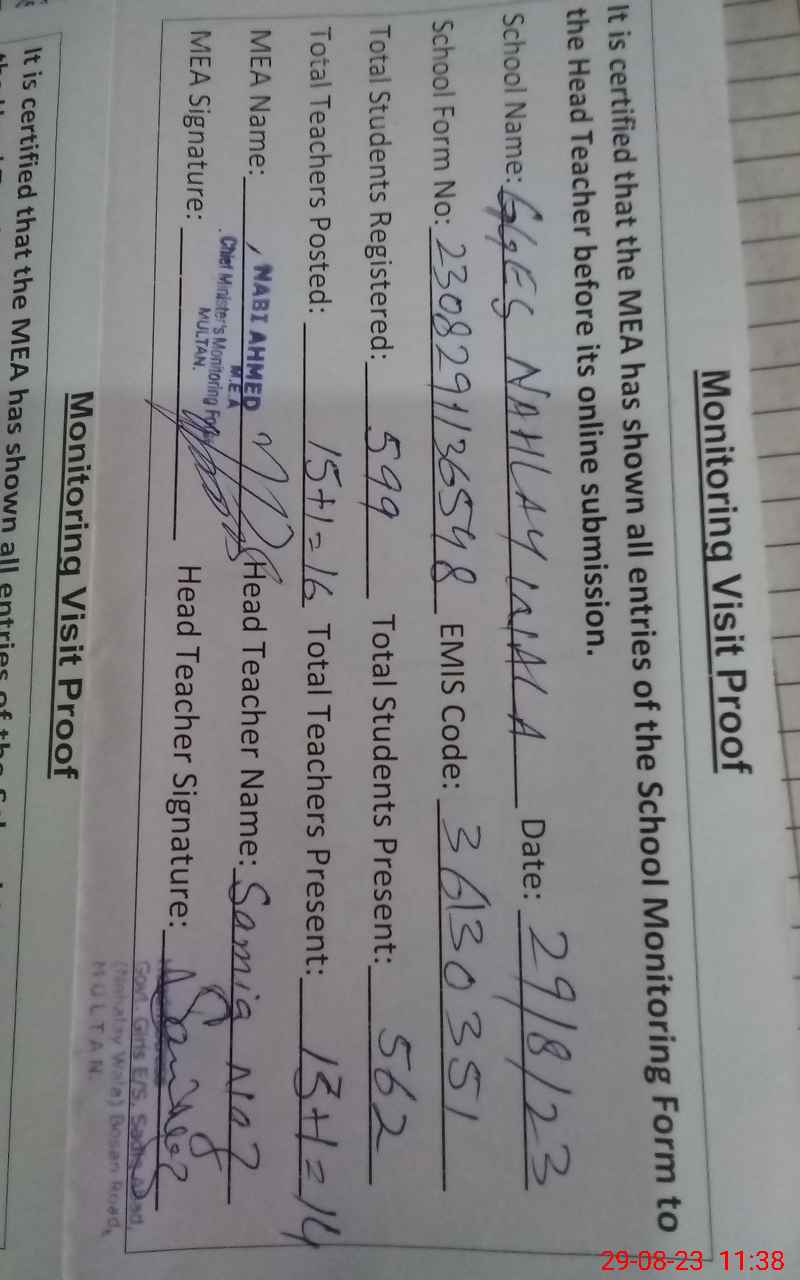 Monitoring Visit Proof
It is certified that the MEA has shown all entries of the School Monitoring Form to
the Head Teacher before its online submission.
School Name: GGES NAHLAY WALA Date: 29/8/23
School Form No: 230829113654 8 EMIS Code: 36130351
Total Students Registered: 599 Total Students Present: 562
Total Teachers Posted: 15+1=16 Total Teachers Present: 13+1=14
MEA Name: NABI AHMED Head Teacher Name: Samia Naz
M.E.A
Chief Minister's Monitoring Force
MULTAN.
MEA Signature: Head Teacher Signature:
Govt. Girls E/S,
(Nahalay Wala) Bosan Road,
MULTAN.
Monitoring Visit Proof
It is certified that the MEA has shown all entries of the
29-08-23 11:38